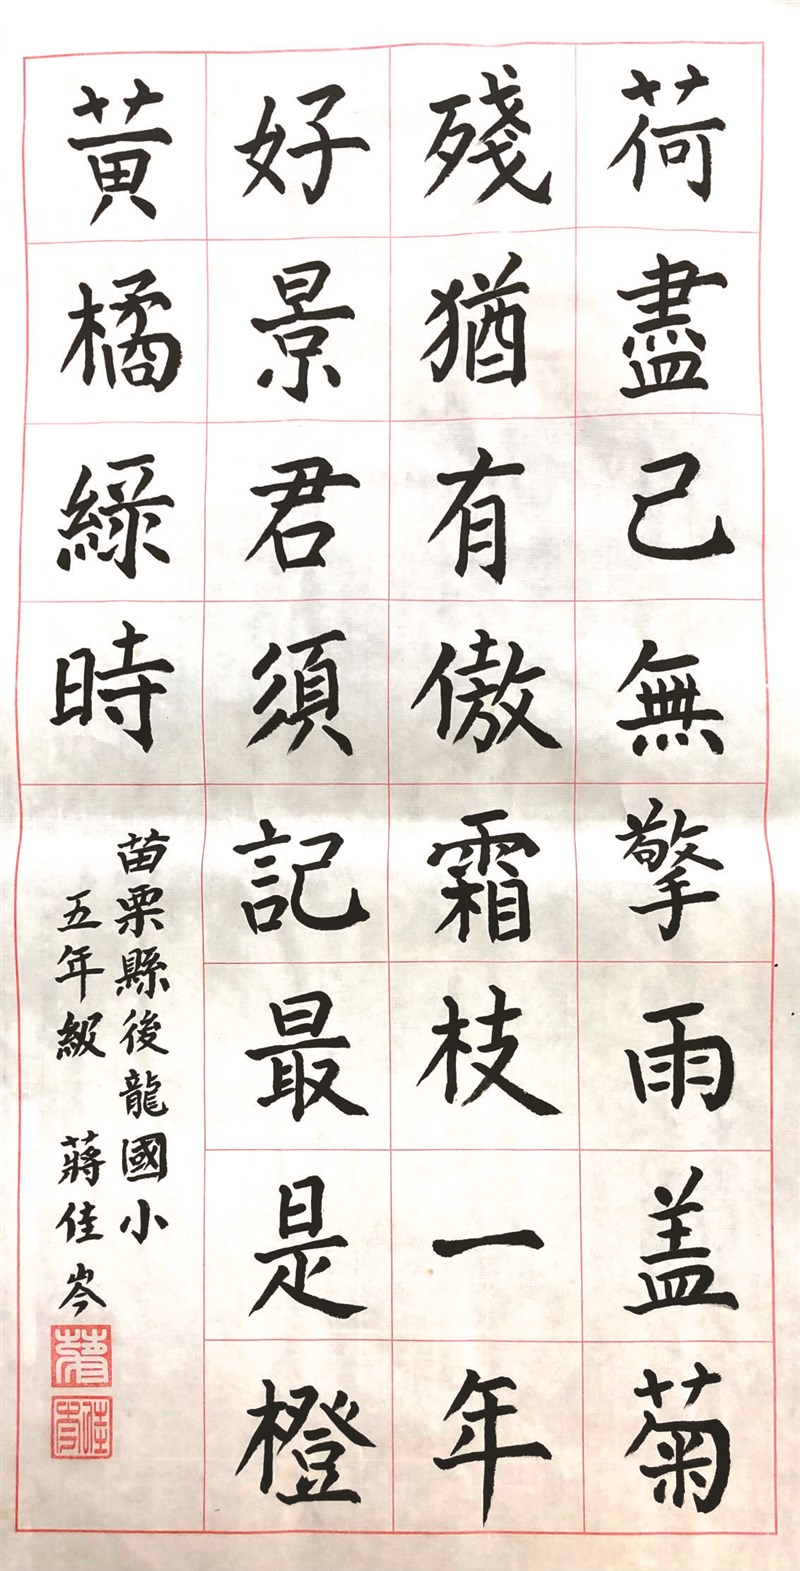 荷盡己無擎雨盖菊
殘猶有傲霜枝一年
好景君須記最是橙
黃橘綠時
苗栗縣後龍國小
五年級 蔣佳岑